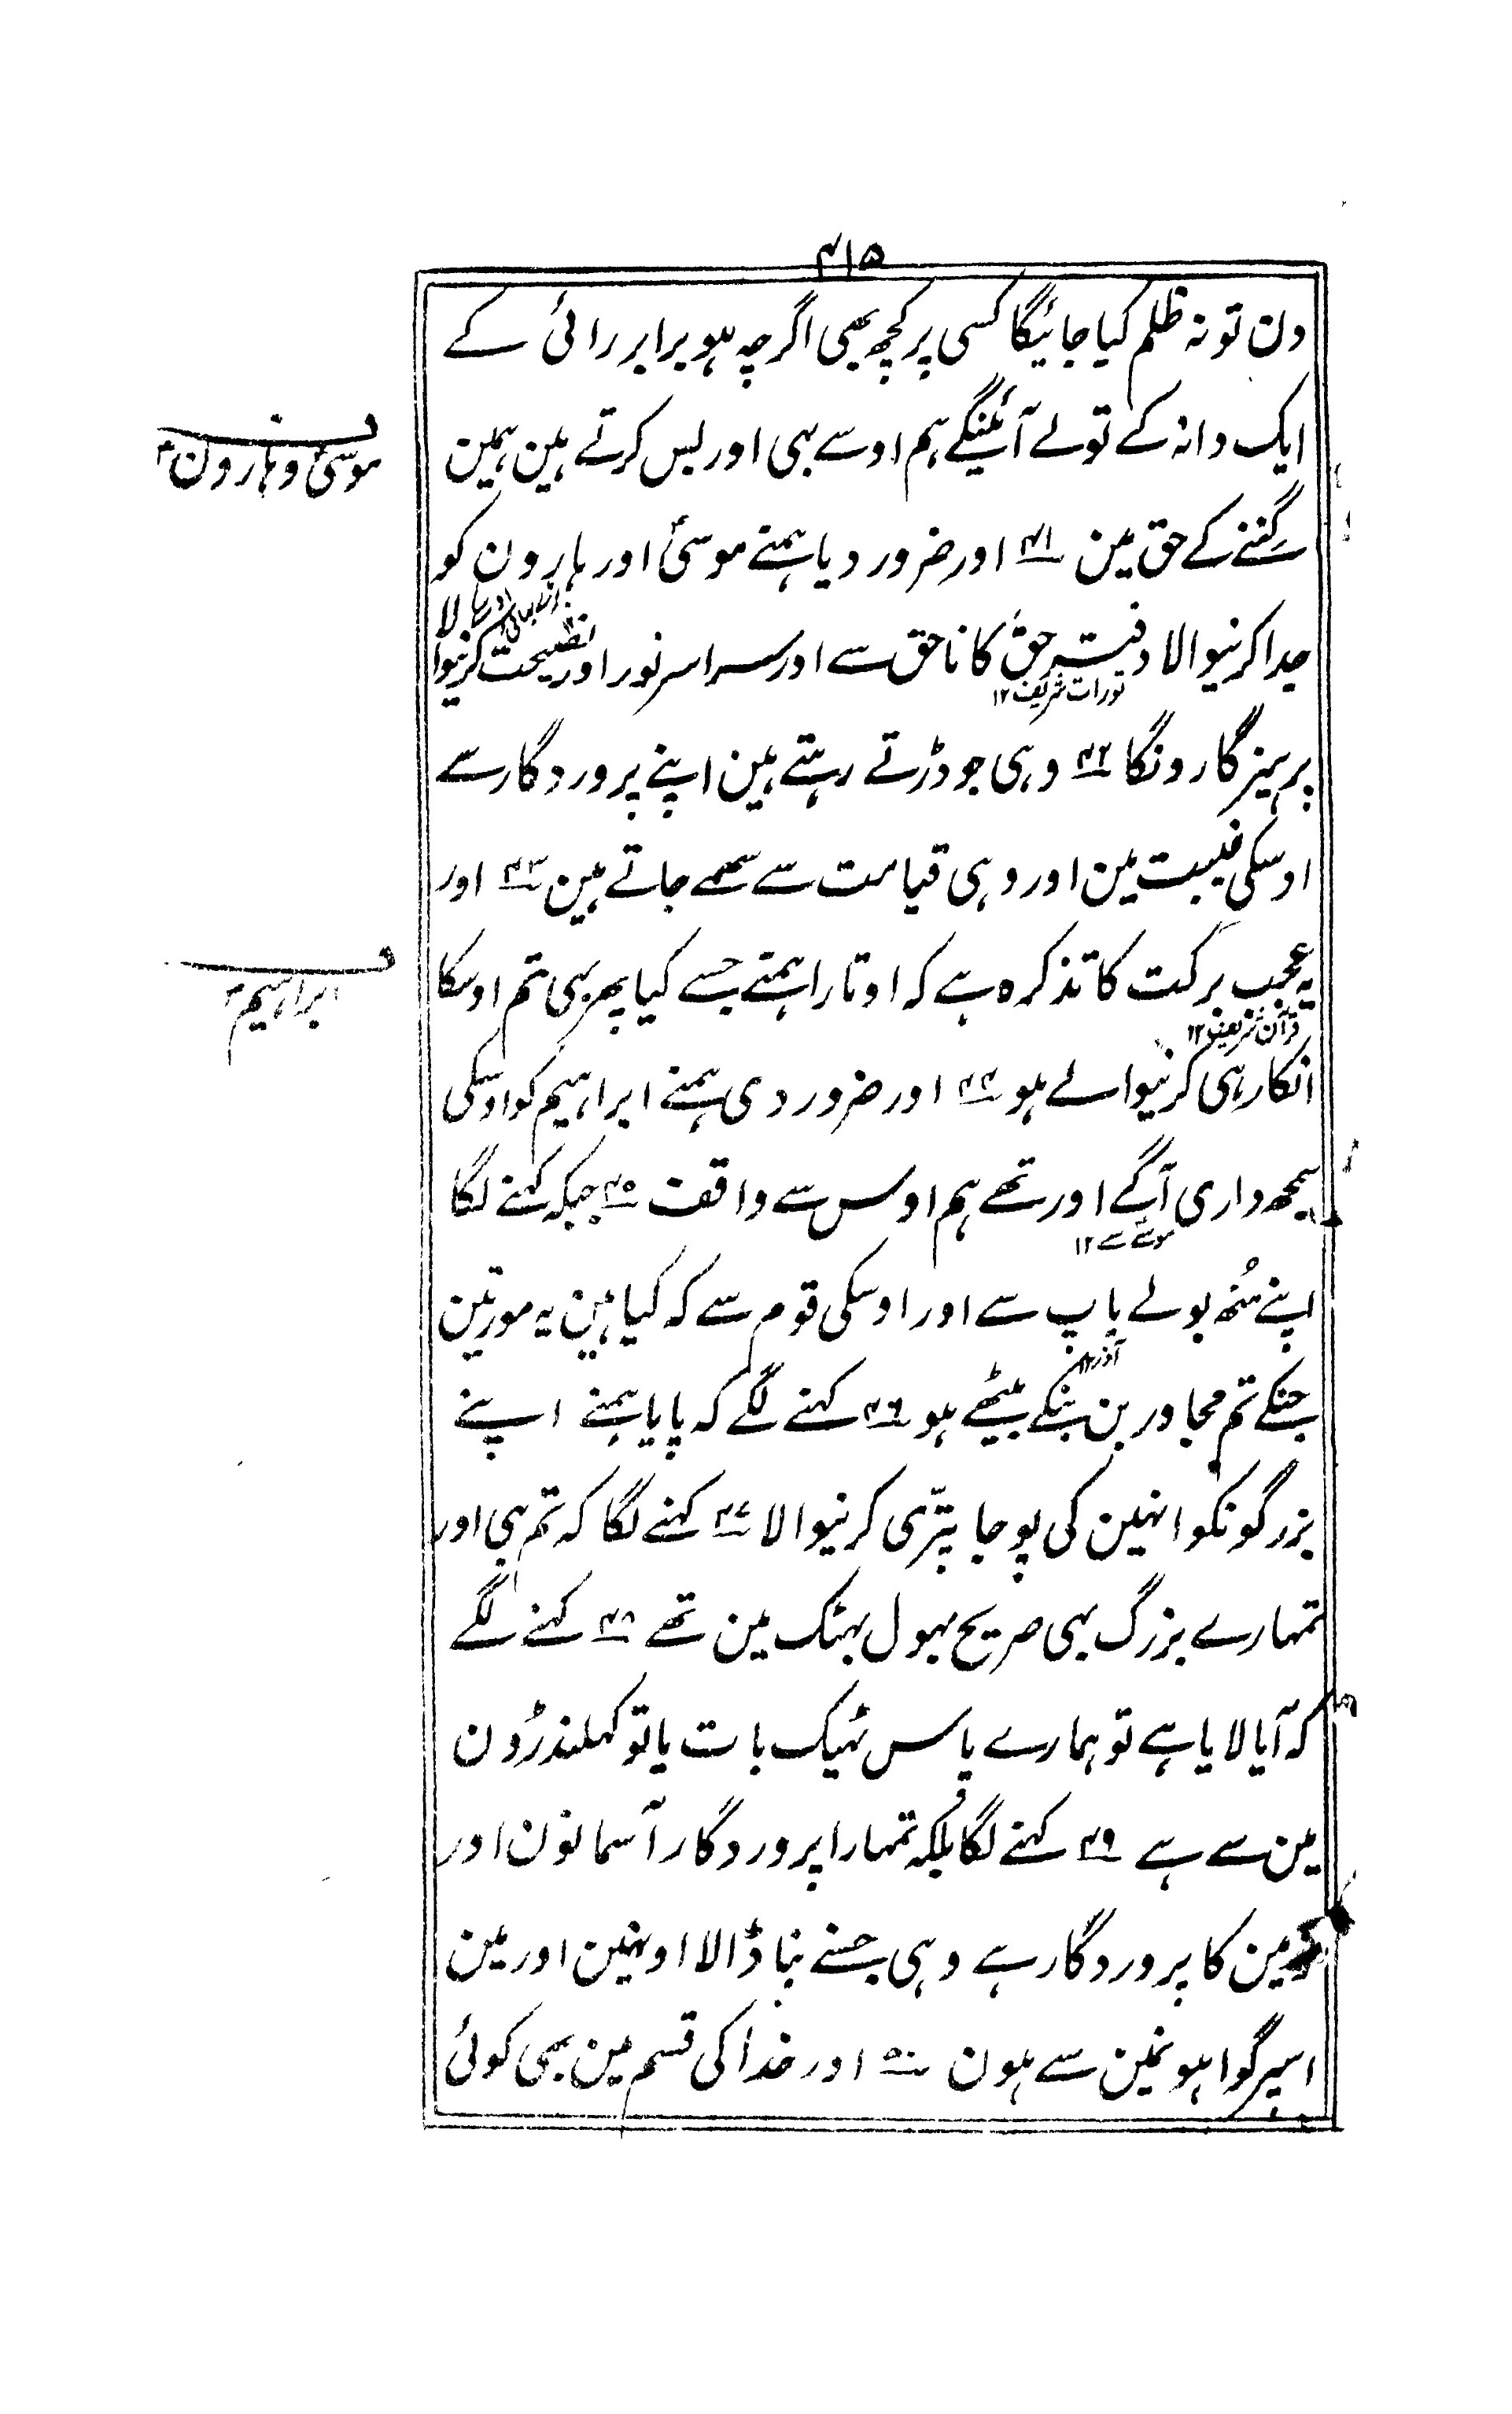 ۴۱۵
دن تو نہ ظلم کیا جائیگا کسی پر کچھ بھی اگرچہ ہو برابر رائی کے
ایک دانہ کے تولے آئینگے ہم اوسے بہی اور بس کرتے ہین ہمین
موسیٰ و ہارون
گننے کے حق مین ۴۱ اور ضرور دیا ہمنے موسیٰ اور ہارون کو
جدا کرنیوالا دفتر حق کا ناحق سے اور سراسر نور اور نصیحت کرنیوالا
تورات شریف ۱۲
پرہیزگارونکا ۴۲ وہی جو ڈرتے رہتے ہین اپنے پروردگار سے
اوسکی غیبت مین اور وہی قیامت سے سہمے جاتے ہین ۴۳ اور
یہ عجب برکت کا تذکرہ ہے کہ اوتارا ہمنے جسے کیا پھر بہی تم اوسکا
ابراہیم
قرآن شریف ۱۲
انکار ہی کرنیوالے ہو ۴۴ اور ضرور دی ہمنے ابراہیم کو اوسکی
سمجھداری آگے اور تھے ہم اوس سے واقف ۴۵ جبکہ کہنے لگا
موسےٰ سے ۱۲
اپنے مُنھ بولے باپ سے اور اوسکی قوم سے کہ کیا ہین یہ مورتین
آذر ۱۲
جنکے تم مجاور بن بنکے بیٹھے ہو ۴۶ کہنے لگے کہ پایا ہمنے اپنے
بزرگونکو انہین کی پوجا پتری کرنیوالا ۴۷ کہنے لگا کہ تم ہی اور
تمہارے بزرگ بہی صریح بہول بہٹک مین تھے ۴۸ کہنے لگے
کہ آیا لایا ہے تو ہمارے پاس ٹہیک بات یا تو کہلنڈرُون
مین سے ہے ۴۹ کہنے لگا بلکہ تمہارا پروردگار آسمانون اور
زمین کا پروردگار ہے وہی جسنے بنا ڈالا اونہین اور مین
اسپر گواہونمین سے ہون ۵۰ اور خدا کی قسم مین بھی کوئی